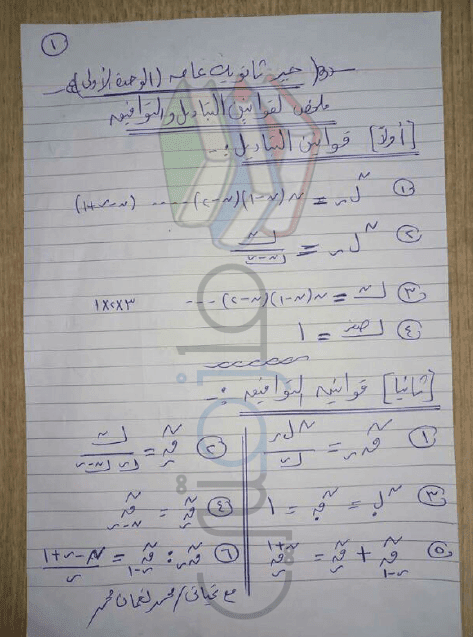 ١
جبر ثانوية عامه (الوحدة الأولى)
ملخص لقوانين التباديل والتوافيق
[أولاً] قوانين التباديل :-
① ⁿلر = ن(ن-١)(ن-٢) ---- (ن-ر+١)
② ⁿلر = ⌊ن / ⌊ن-ر
③ ⌊ن = ن(ن-١)(ن-٢) --- ٣×٢×١
④ ⌊صفر = ١
[ثانياً] قوانين التوافيق :-
① ⁿقر = ⁿلر / ⌊ر
② ⁿقر = ⌊ن / ⌊ر ⌊ن-ر
③ ⁿل٠ = ⁿق٠ = ١
④ ⁿقر = ⁿقن-ر
⑤ ⁿقر + ⁿقر-١ = ⁿ⁺¹قر
⑥ ⁿقر : ⁿقر-١ = ن-ر+١ / ر
مع تحياتي / محمد لقمان محمد